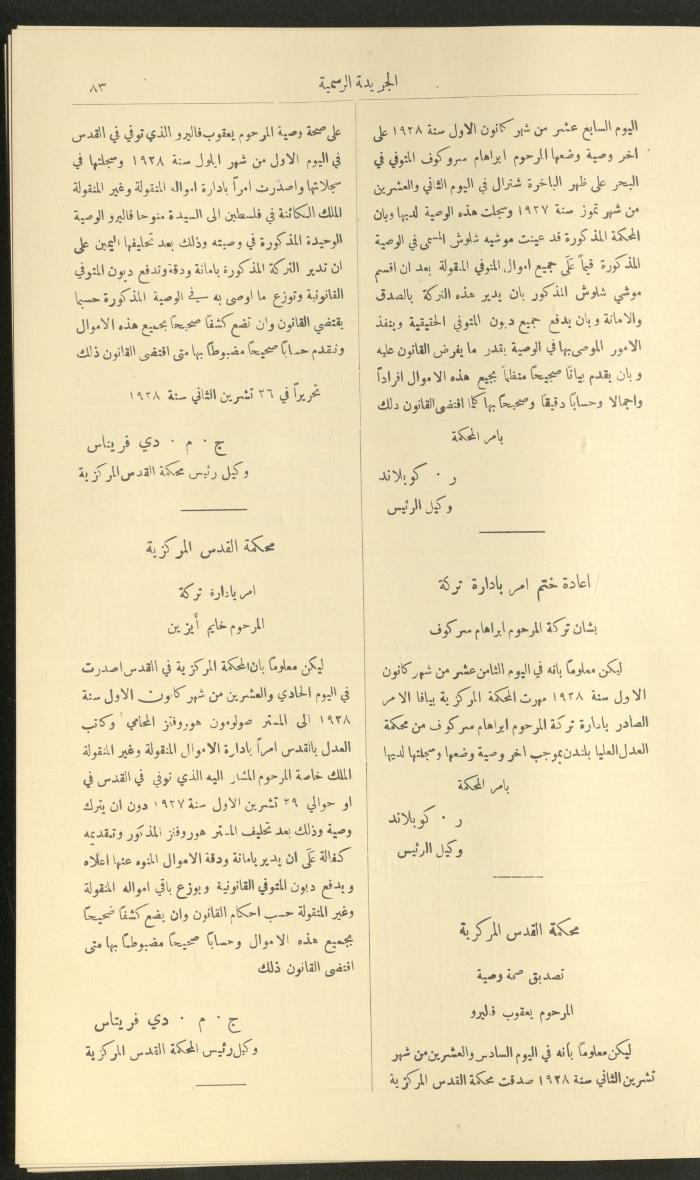 الجريدة الرسمية
٨٣
اليوم السابع عشر من شهر كانون الاول سنة ١٩٢٨ على
اخر وصية وضعها المرحوم ابراهام سركوف المتوفي في
البحر على ظهر الباخرة شنرال في اليوم الثاني والعشرين
من شهر تموز سنة ١٩٢٧ وسجلت هذه الوصية لديها وبان
المحكمة المذكورة قد عينت موشيه شلوش المسمى في الوصية
المذكورة قيماً عَلَى جميع اموال المتوفي المنقولة بعد ان اقسم
موشي شلوش المذكور بان يدير هذه التركة بالصدق
والامانة وبان يدفع جميع ديون المتوفي الحقيقية وينفذ
الامور الموصى بها في الوصية بقدر ما يفرض القانون عليه
وبان يقدم بياناً صحيحاً منظماً بجميع هذه الاموال افراداً
واجمالا وحساباً دقيقاً وصحيحاً بها كلما اقتضى القانون ذلك
بامر المحكمة
ر ٠ كوبلاند
وكيل الرئيس
اعادة ختم امر بادارة تركة
بشان تركة المرحوم ابراهام سركوف
ليكن معلوماً بانه في اليوم الثامن عشر من شهر كانون
الاول سنة ١٩٢٨ مهرت المحكمة المركزية بيافا الامر
الصادر بادارة تركة المرحوم ابراهام سركوف من محكمة
العدل العليا بلندن بموجب اخر وصية وضعها وسجلتها لديها
بامر المحكمة
ر ٠ كوبلاند
وكيل الرئيس
محكمة القدس المركزية
تصديق صحة وصية
المرحوم يعقوب فاليرو
ليكن معلوماً بانه في اليوم السادس والعشرين من شهر
تشرين الثاني سنة ١٩٢٨ صدقت محكمة القدس المركزية
على صحة وصية المرحوم يعقوب فاليرو الذي توفي في القدس
في اليوم الاول من شهر ايلول سنة ١٩٢٨ وسجلتها في
سجلاتها واصدرت امراً بادارة امواله المنقولة وغير المنقولة
الملك الكائنة في فلسطين الى السيدة منوحا فاليرو الوصية
الوحيدة المذكورة في وصيته وذلك بعد تحليفها اليمين على
ان تدير التركة المذكورة بامانة ودقة وتدفع ديون المتوفي
القانونية وتوزع ما اوصى به في الوصية المذكورة حسبما
يقتضي القانون وان تضع كشفاً صحيحاً بجميع هذه الاموال
وتقدم حساباً صحيحاً مضبوطاً بها متى اقتضى القانون ذلك
تحريراً في ٢٦ تشرين الثاني سنة ١٩٢٨
ج ٠ م ٠ دي فريتاس
وكيل رئيس محكمة القدس المركزية
محكمة القدس المركزية
امر بادارة تركة
المرحوم خايم أيزين
ليكن معلوماً بان المحكمة المركزية في القدس اصدرت
في اليوم الحادي والعشرين من شهر كانون الاول سنة
١٩٢٨ الى المستر صولومون هوروفتز المحامي وكاتب
العدل بالقدس امراً بادارة الاموال المنقولة وغير المنقولة
الملك خاصة المرحوم المشار اليه الذي توفي في القدس في
او حوالي ٢٩ تشرين الاول سنة ١٩٢٧ دون ان يترك
وصية وذلك بعد تحليف المستر هوروفتز المذكور وتقديمه
كفالة عَلَى ان يدير بامانة ودقة الاموال المنوه عنها اعلاه
ويدفع ديون المتوفي القانونية ويوزع باقي امواله المنقولة
وغير المنقولة حسب احكام القانون وان يضع كشفاً صحيحاً
بجميع هذه الاموال وحساباً صحيحاً مضبوطاً بها متى
اقتضى القانون ذلك
ج ٠ م ٠ دي فريتاس
وكيل رئيس المحكمة القدس المركزية